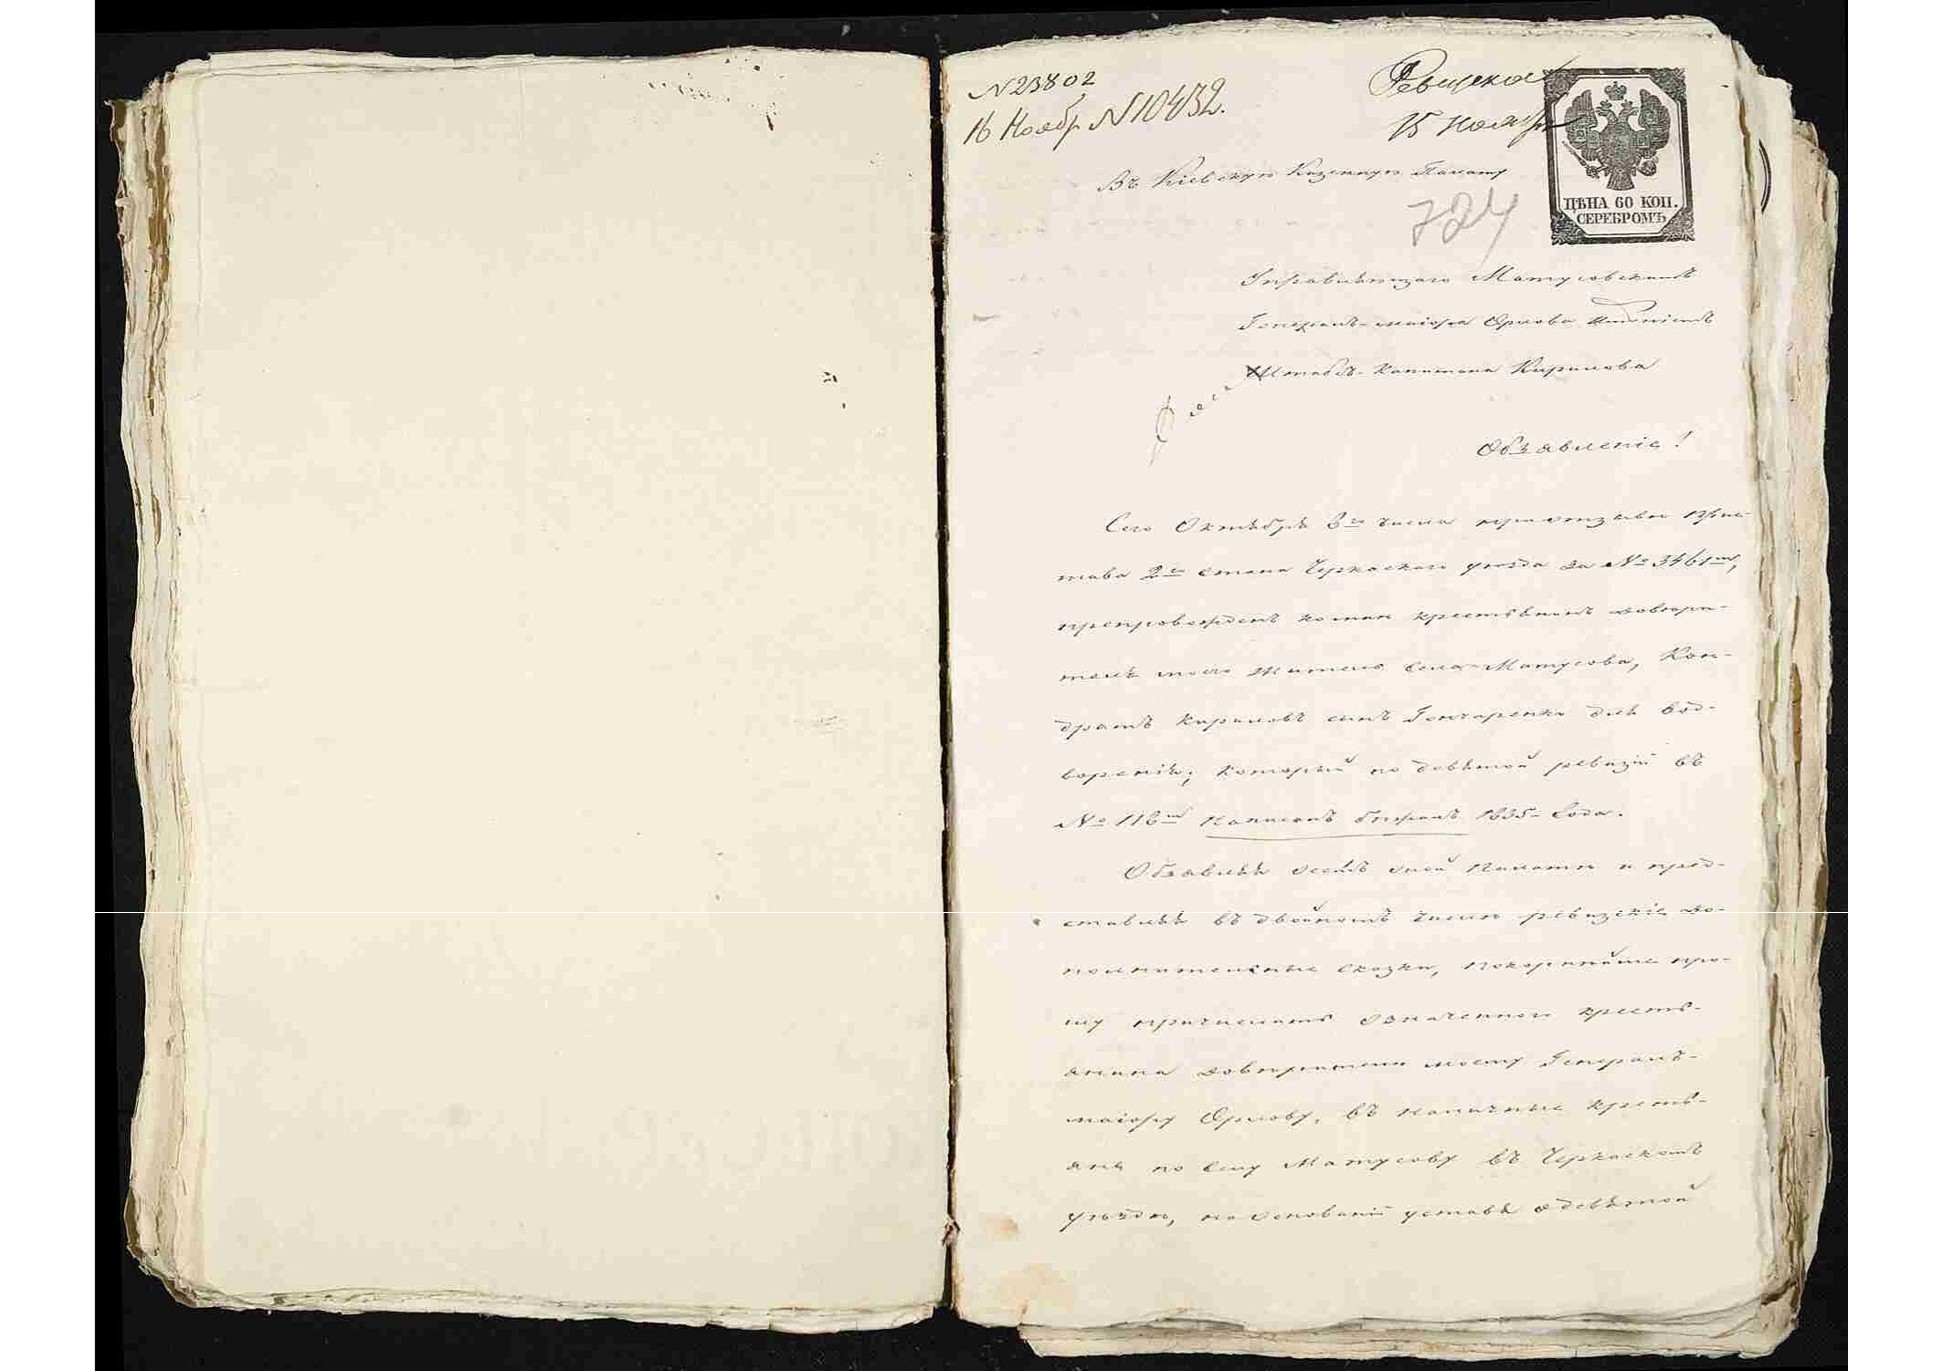 N 23802
16 Ноябр N 10432.
Ревизская
15 Ноября
ЦѢНА 60 КОП.
СЕРЕБРОМЪ
Въ Кіевскую Казенную Палату
724
Управляющаго Матусовскимъ
Генералъ-маіора Орлова имѣніемъ
Штабсъ-Капитана Кирилова
Обзявленіе!
Сего Октября 3го числа при отзыве При-
става 2го стана Черкаского уѣзда за № 3461м,
препровожденъ ко мнѣ крестьянинъ довери-
теля моего житель села Матусова, Кон-
дратъ Кириловъ сынъ Гончаренко для вод-
воренія; который по девятой ревизіи въ
№ 118м написанъ бѣжалъ 1835 года.
Обзявляя осемъ оной Палатѣ и пред-
ставляя въ двойномъ числѣ ревизскіе до-
полнительные сказки, покорнѣйше про-
шу причислить означенного кресть-
янина доверителю моему Генералъ-
маіору Орлову, въ наличные кресть-
яне по селу Матусову въ Черкаскомъ
уѣздѣ, на основаніи устава о девятой